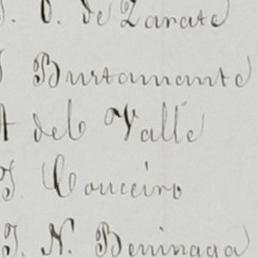 J. C. de Zarate
J Burtamante
A del Valle
J. Couceiro
J. N. Beninaga